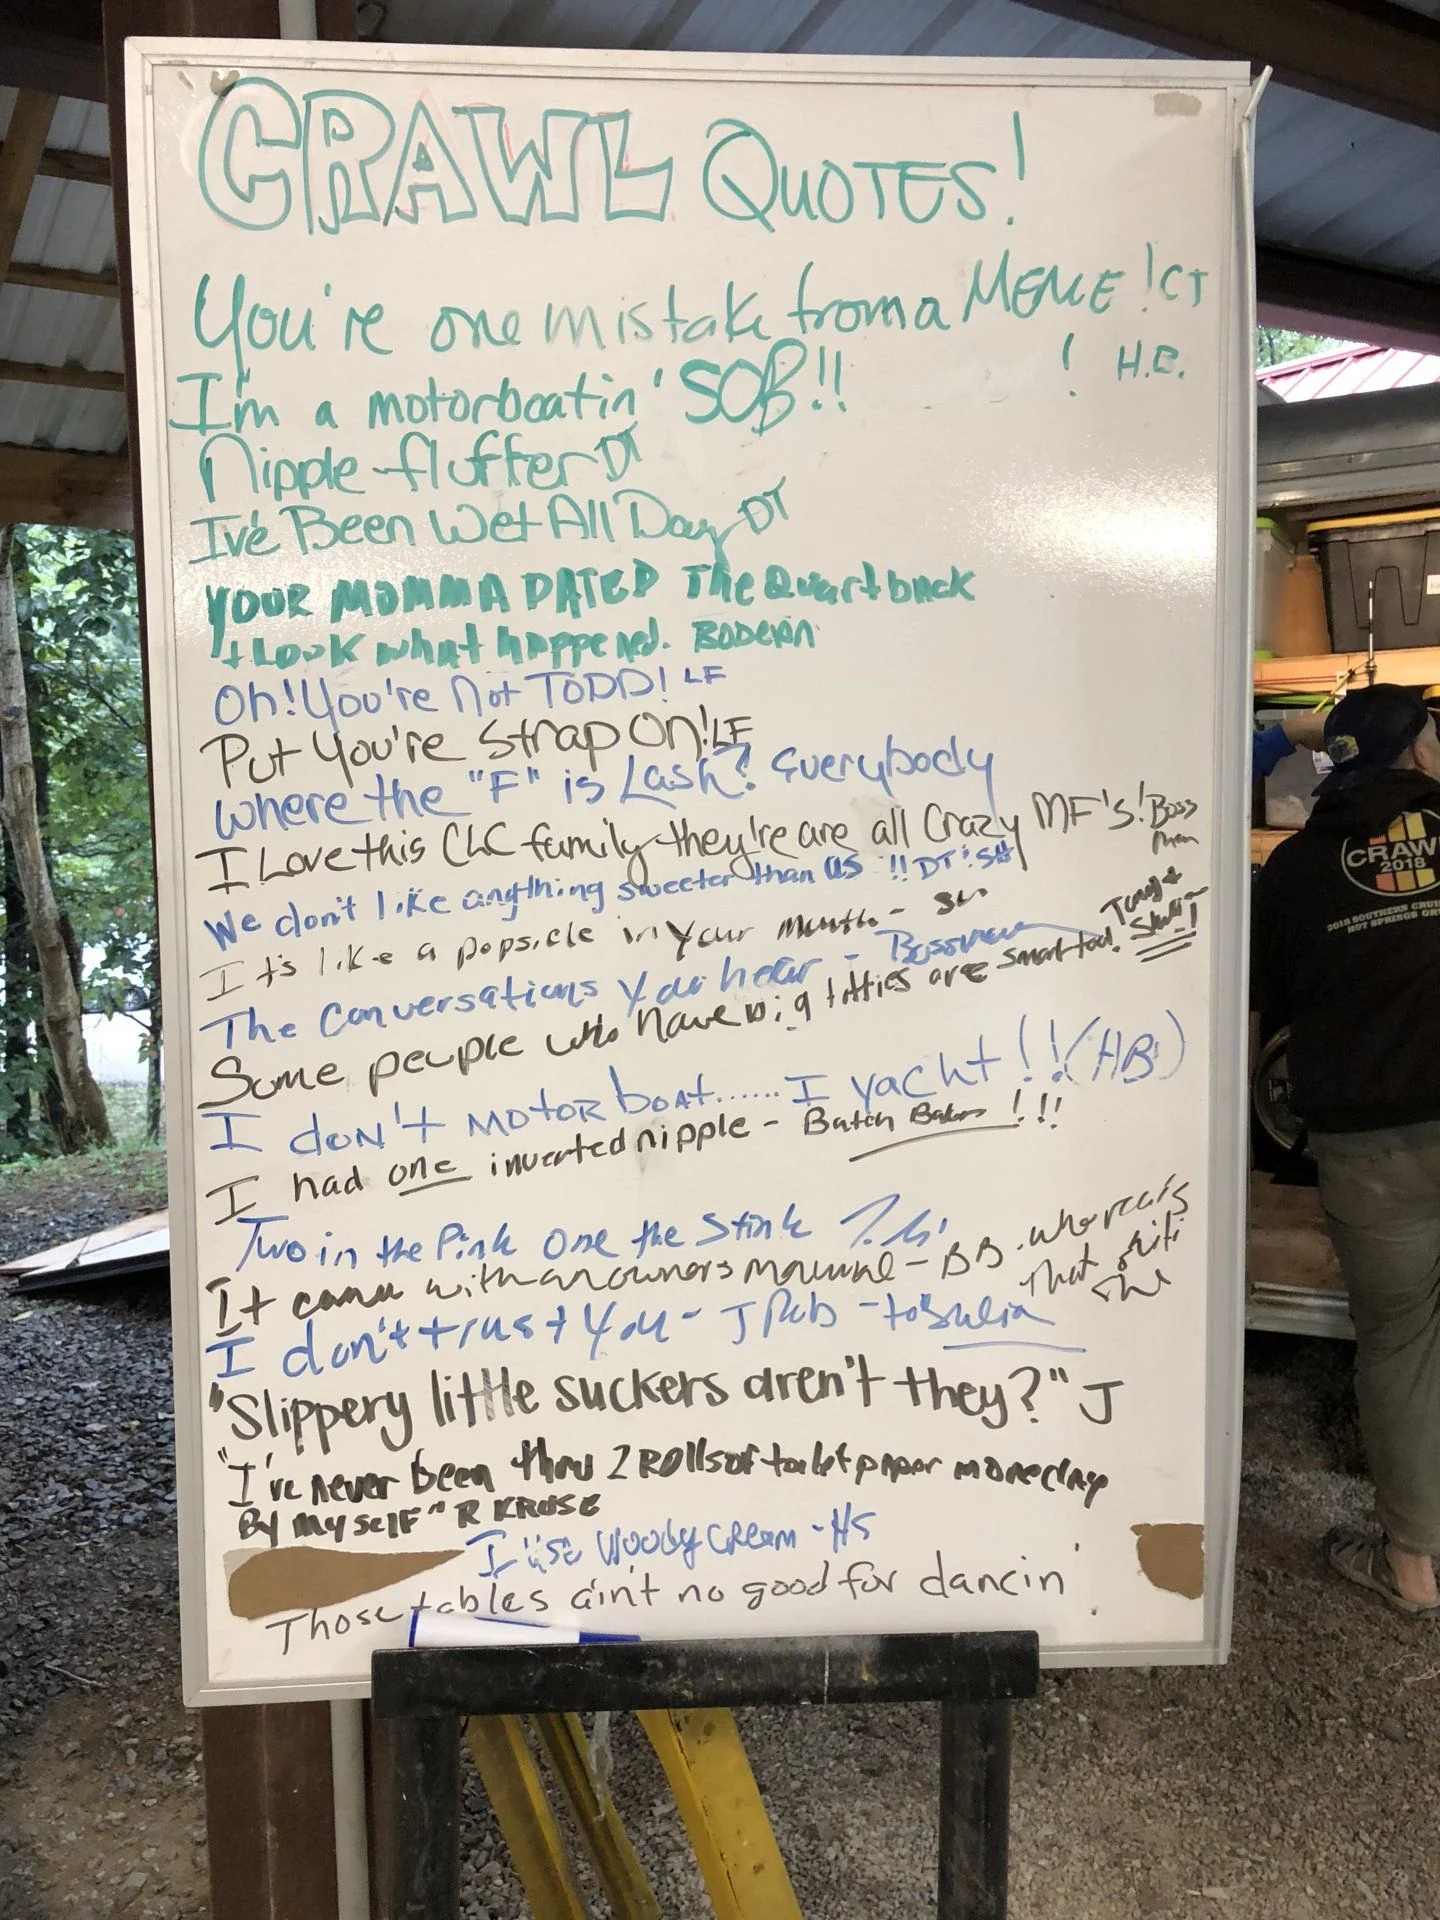 CRAWL QUOTES!
You're one mistake from a MEME! CT
I'm a motorboatin' SOB!! ! H.B.
Nipple-fluffer DT
I've Been Wet All Day DT
YOUR MOMMA DATED The Quartback
+ LOOK what happened. BODEAN
Oh! You're Not TODD! LF
Put You're Strap On! LF
Where the "F" is Lash? Everybody
I Love this CLC family they're are all Crazy MF's! Boss Man
We don't like anything sweeter than us !! DT
It's like a popsicle in your mouth -
The Conversations you hear - Bossman
Some people who have big titties are smart too!
I don't MOTOR boat...... I yacht!! (HB)
I had one inverted nipple - Batch Baker !!!
Two in the Pink One the Stink
It came with an owners manual - BB. whereas
That
I don't trust You - J Rob - to Julia
"Slippery little suckers aren't they?" J
"I've never been thru 2 Rolls of toilet paper in one day
By myself" R KRUSE
I use Woody Cream - HS
Those tables ain't no good for dancin'
CRAWL
2018
2018 SOUTHERN
HOT SPRINGS